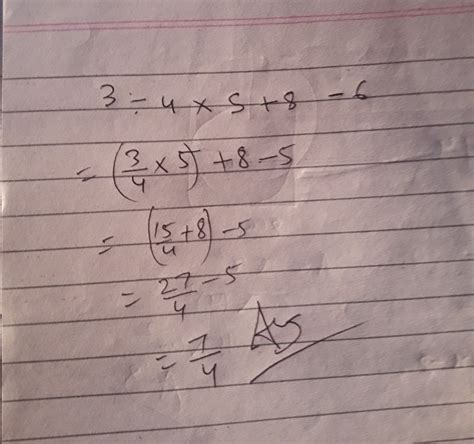 3 ÷ 4 × 5 + 8 - 6
= (3/4 × 5) + 8 - 5
= (15/4 + 8) - 5
= 27/4 - 5
= 7/4 Ans